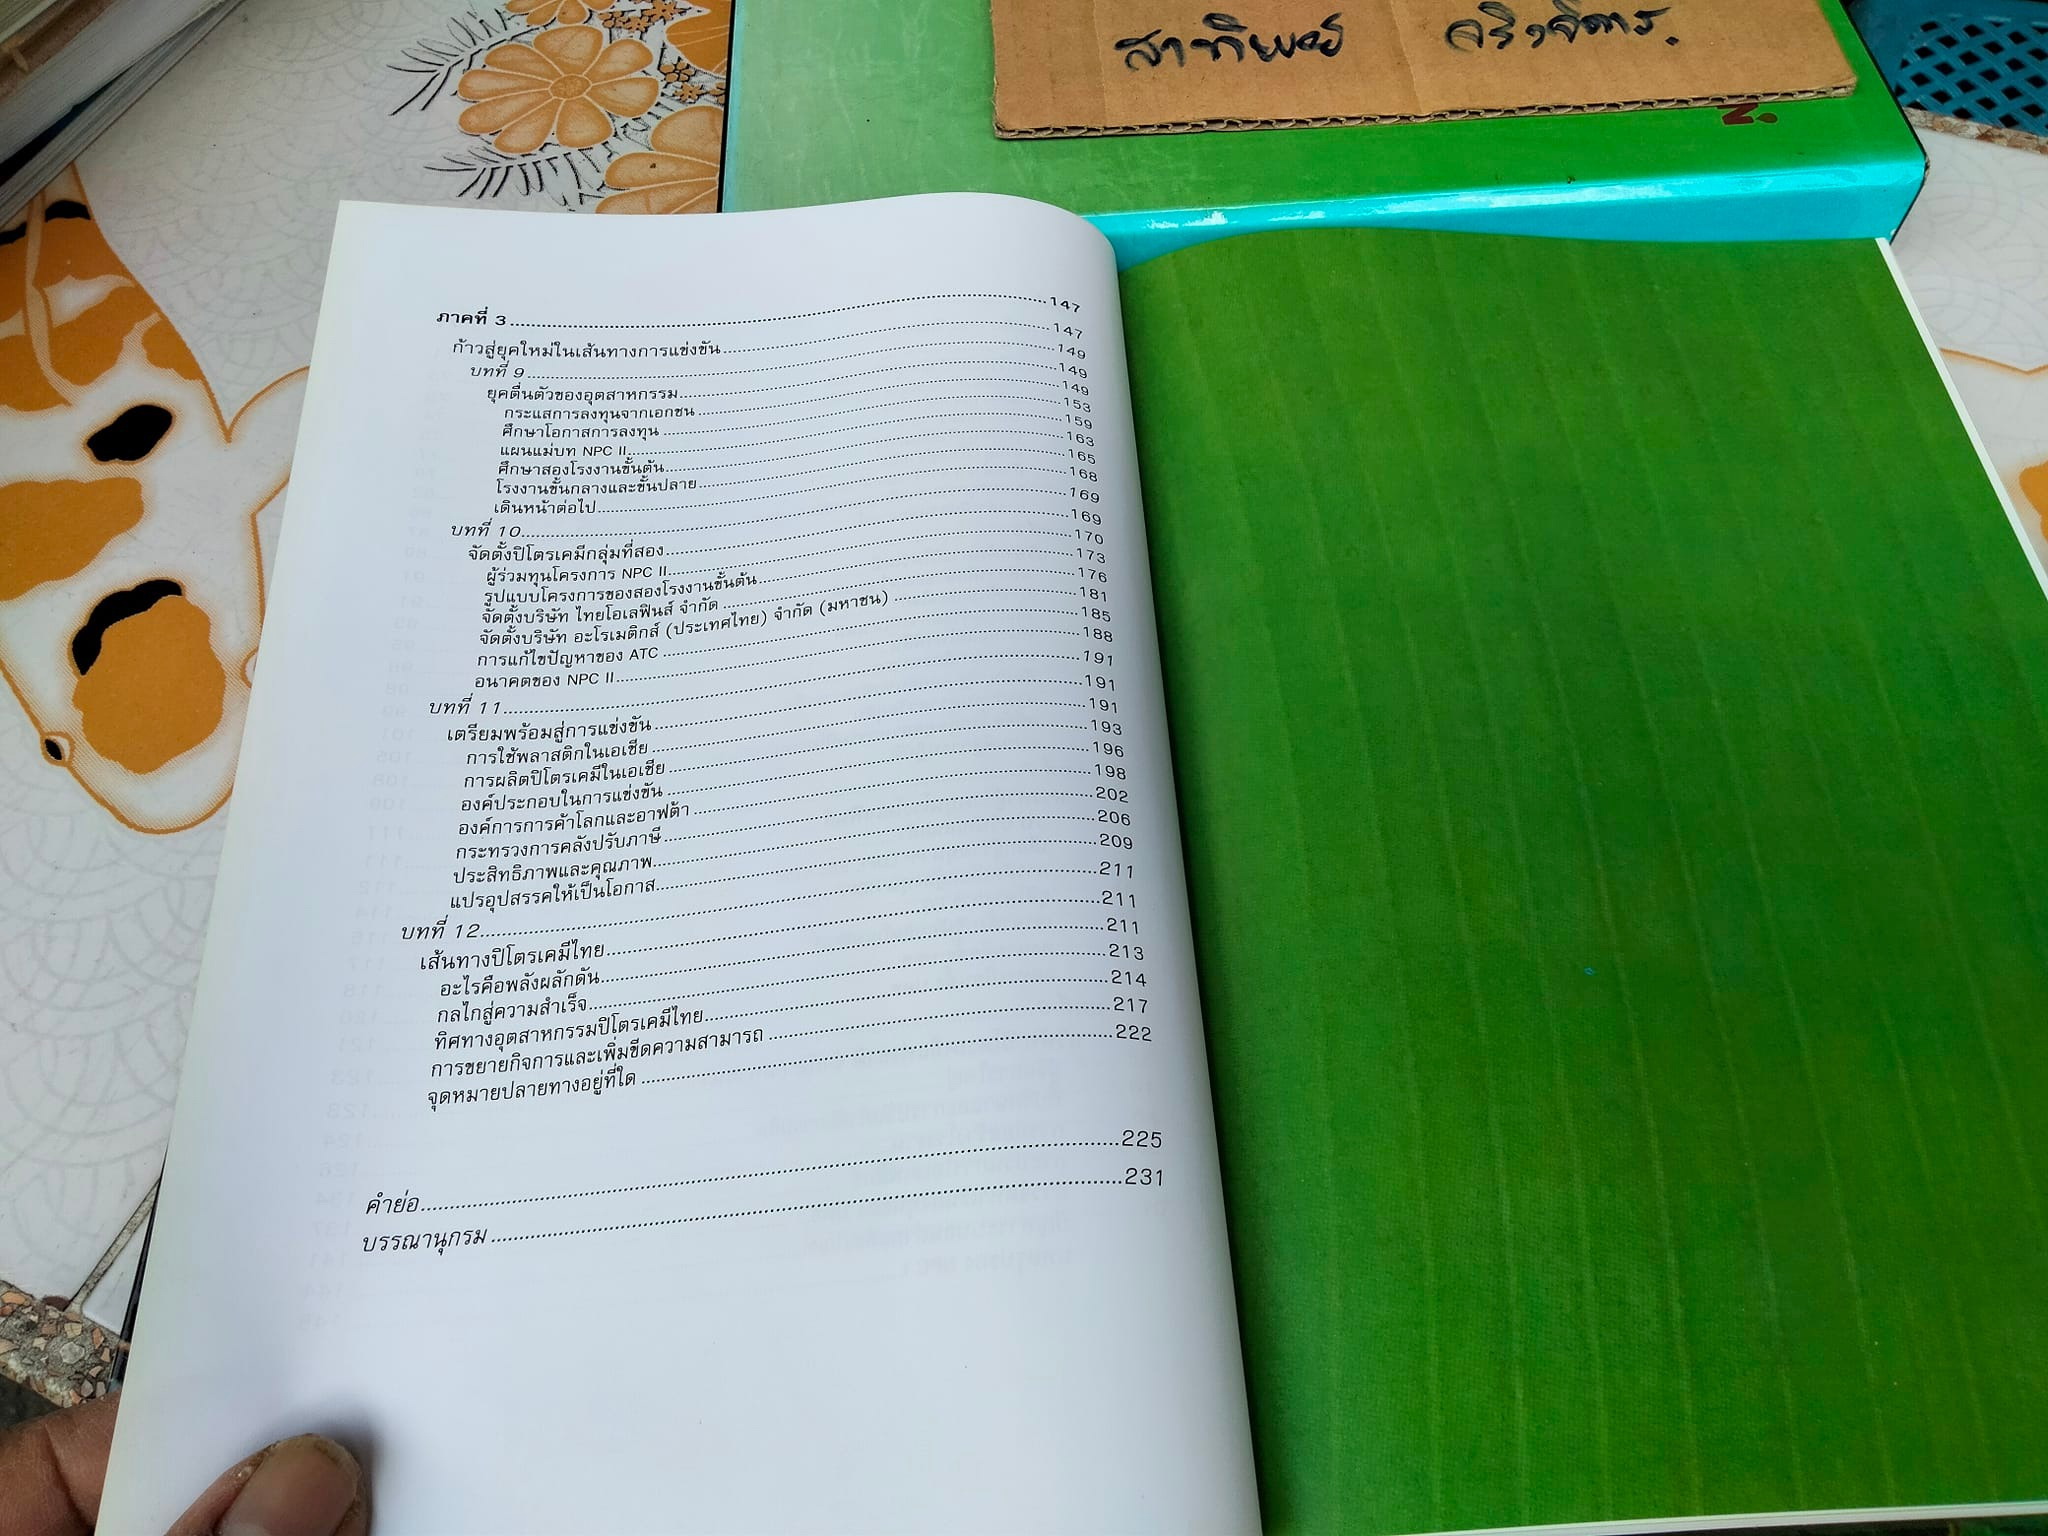 สาทิพย์
ภาคที่ 3 147
ก้าวสู่ยุคใหม่ในเส้นทางการแข่งขัน 147
บทที่ 9 149
ยุคตื่นตัวของอุตสาหกรรม 149
กระแสการลงทุนจากเอกชน 149
ศึกษาโอกาสการลงทุน 153
แผนแม่บท NPC II 159
ศึกษาสองโรงงานขั้นต้น 163
โรงงานขั้นกลางและขั้นปลาย 165
เดินหน้าต่อไป 168
บทที่ 10 169
จัดตั้งปิโตรเคมีกลุ่มที่สอง 169
ผู้ร่วมทุนโครงการ NPC II 170
รูปแบบโครงการของสองโรงงานขั้นต้น 173
จัดตั้งบริษัท ไทยโอเลฟินส์ จำกัด 176
จัดตั้งบริษัท อะโรเมติกส์ (ประเทศไทย) จำกัด (มหาชน) 181
การแก้ไขปัญหาของ ATC 185
อนาคตของ NPC II 188
บทที่ 11 191
เตรียมพร้อมสู่การแข่งขัน 191
การใช้พลาสติกในเอเชีย 191
การผลิตปิโตรเคมีในเอเชีย 193
องค์ประกอบในการแข่งขัน 196
องค์การการค้าโลกและอาฟต้า 198
กระทรวงการคลังปรับภาษี 202
ประสิทธิภาพและคุณภาพ 206
แปรอุปสรรคให้เป็นโอกาส 209
บทที่ 12 211
เส้นทางปิโตรเคมีไทย 211
อะไรคือพลังผลักดัน 211
กลไกสู่ความสำเร็จ 213
ทิศทางอุตสาหกรรมปิโตรเคมีไทย 214
การขยายกิจการและเพิ่มขีดความสามารถ 217
จุดหมายปลายทางอยู่ที่ใด 222
คำย่อ 225
บรรณานุกรม 231